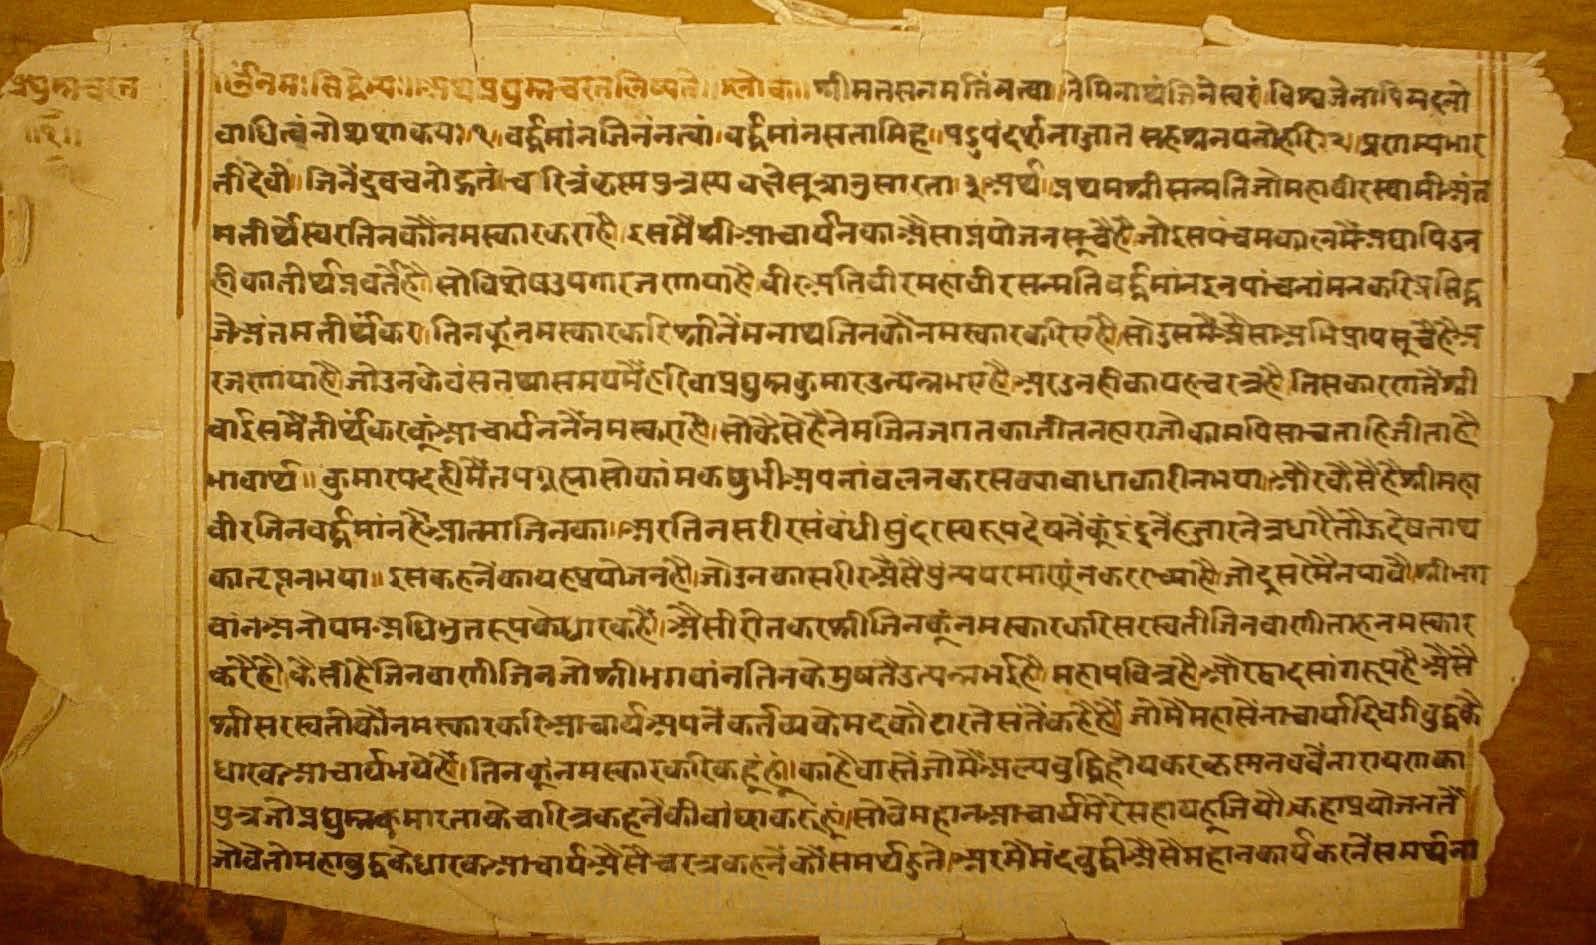 प्रद्युम्नचरत्र
॥१॥
॥ॐनमः सिद्धेभ्यः॥अथप्रद्युम्नचरत्रलिष्यते॥श्लोक॥श्रीमतसनमतिंनत्वा।नेमिनाथंजिनेस्वरं।विश्वजेतापिमदनो
वाधितुंनोथशाकयः।१।वर्द्धमांनजिनंनत्वां।वर्द्धमांनसतामिह।यद्रूपंदर्शनाज्जात सहस्रनयनोहरिः२।प्रणम्यभार
तींदेवी।जिनेंद्रवचनोद्गतं।चरित्रंकृस्मपुत्रस्य वक्षेसूत्रानुसारता।३।अर्थ।प्रथमश्रीसन्मतिजोमहावीरस्वामीअंत
मतीर्थेस्वरतिनकौंनमस्कारकराहै।इसमैंश्रीआचार्यनकाअैसाप्रयोजनसूचैहै।जोइसपंचमकालमैंअद्यापिउन
हीकातीर्थप्रवर्तेहै।सोविशेषउपगारजणायाहै।वीरअतिवीरमहावीरसन्मतिवर्द्धमांनइनपांचनांमनकरिप्रसिद्ध
जेअंतमतीर्थंकर।तिनकूंनमस्कारकरिश्रीनेंमनाथजिनकौनमस्कारकरिएहै।सोउसमैंअैसाअभिप्रायसूचैहैअ
रजणांयाहै।जोउनकेवंसतथासमयमैंहरिवाप्रद्युम्नकुमारउत्पन्नभएहै।अरउनहीकायहचरत्रहै।तिसकारणतैंश्री
वाईसमैंतीर्थंकरकूंआचार्यननैंनमस्कराहै।सोकैसेहैनेमजिनजगतकाजीतनहाराजोकामपिसाचताहिजीताहै
भावार्थ॥कुमारपदहीमैंतपगृह्यासोकांमकछुभीअपनांवलनकरसक्यावाधाकारीनभया।औरकैसेहैश्रीमहा
वीरजिनवर्द्धमांनहैआत्माजिनका।अरतिनसरीरसंवंधीसुंदरस्वरूपदेषनेकूंइंद्रनेंहजारनेत्रधारैतौऊदेषताथ
कातृप्तनभया॥इसकहनेंकायहप्रयोजनहै।जोउनकासरीरअैसेपुन्यपरमाणूंनकररच्याहै।जोदूसरेमैंनपावै।श्रीभग
वांनअनोपमअधिभुतरूपकेधारकहै।अैसीरीतकरश्रीजिनकूंनमस्कारकरिसरस्वेतीजिनवाणीताहनमस्कार
करैहै।कैसीहैजिनवाणीजिनजोश्रीभगवांनतिनकेमुषतैउत्पन्नभईहै।महापवित्रहै।औरद्वादसांगरूपहै।अैसै
श्रीसरस्वेतीकौंनमस्कारकरिआचार्यअपनेंकर्तव्यकेमदकौटारतेसंतेंकहैहै।जोमैंमहासेंनाचार्यादिवडीवुद्धके
धारकआचार्यभयेहैं।तिनकूंनमस्कारकरिकहूंहूं।काहेवास्तेंजोमैंअल्पवुद्धिहोयकरकृस्मनववैंनारायणका
पुत्रजोप्रद्युम्नकुमारताकेचारित्रकहनेंकीवांछाकरूंहूं।सोवेमहानआचार्यमेरेसहायहूजियौ।कहाप्रयोजनतैं
जोवेतोमहावुद्धकेधारकआचार्यअैसेचरत्रकहनेंकौंसमर्थहुते।अरमैंमंदवुद्धीअैसेमहानकार्यकरनैंसमर्थना